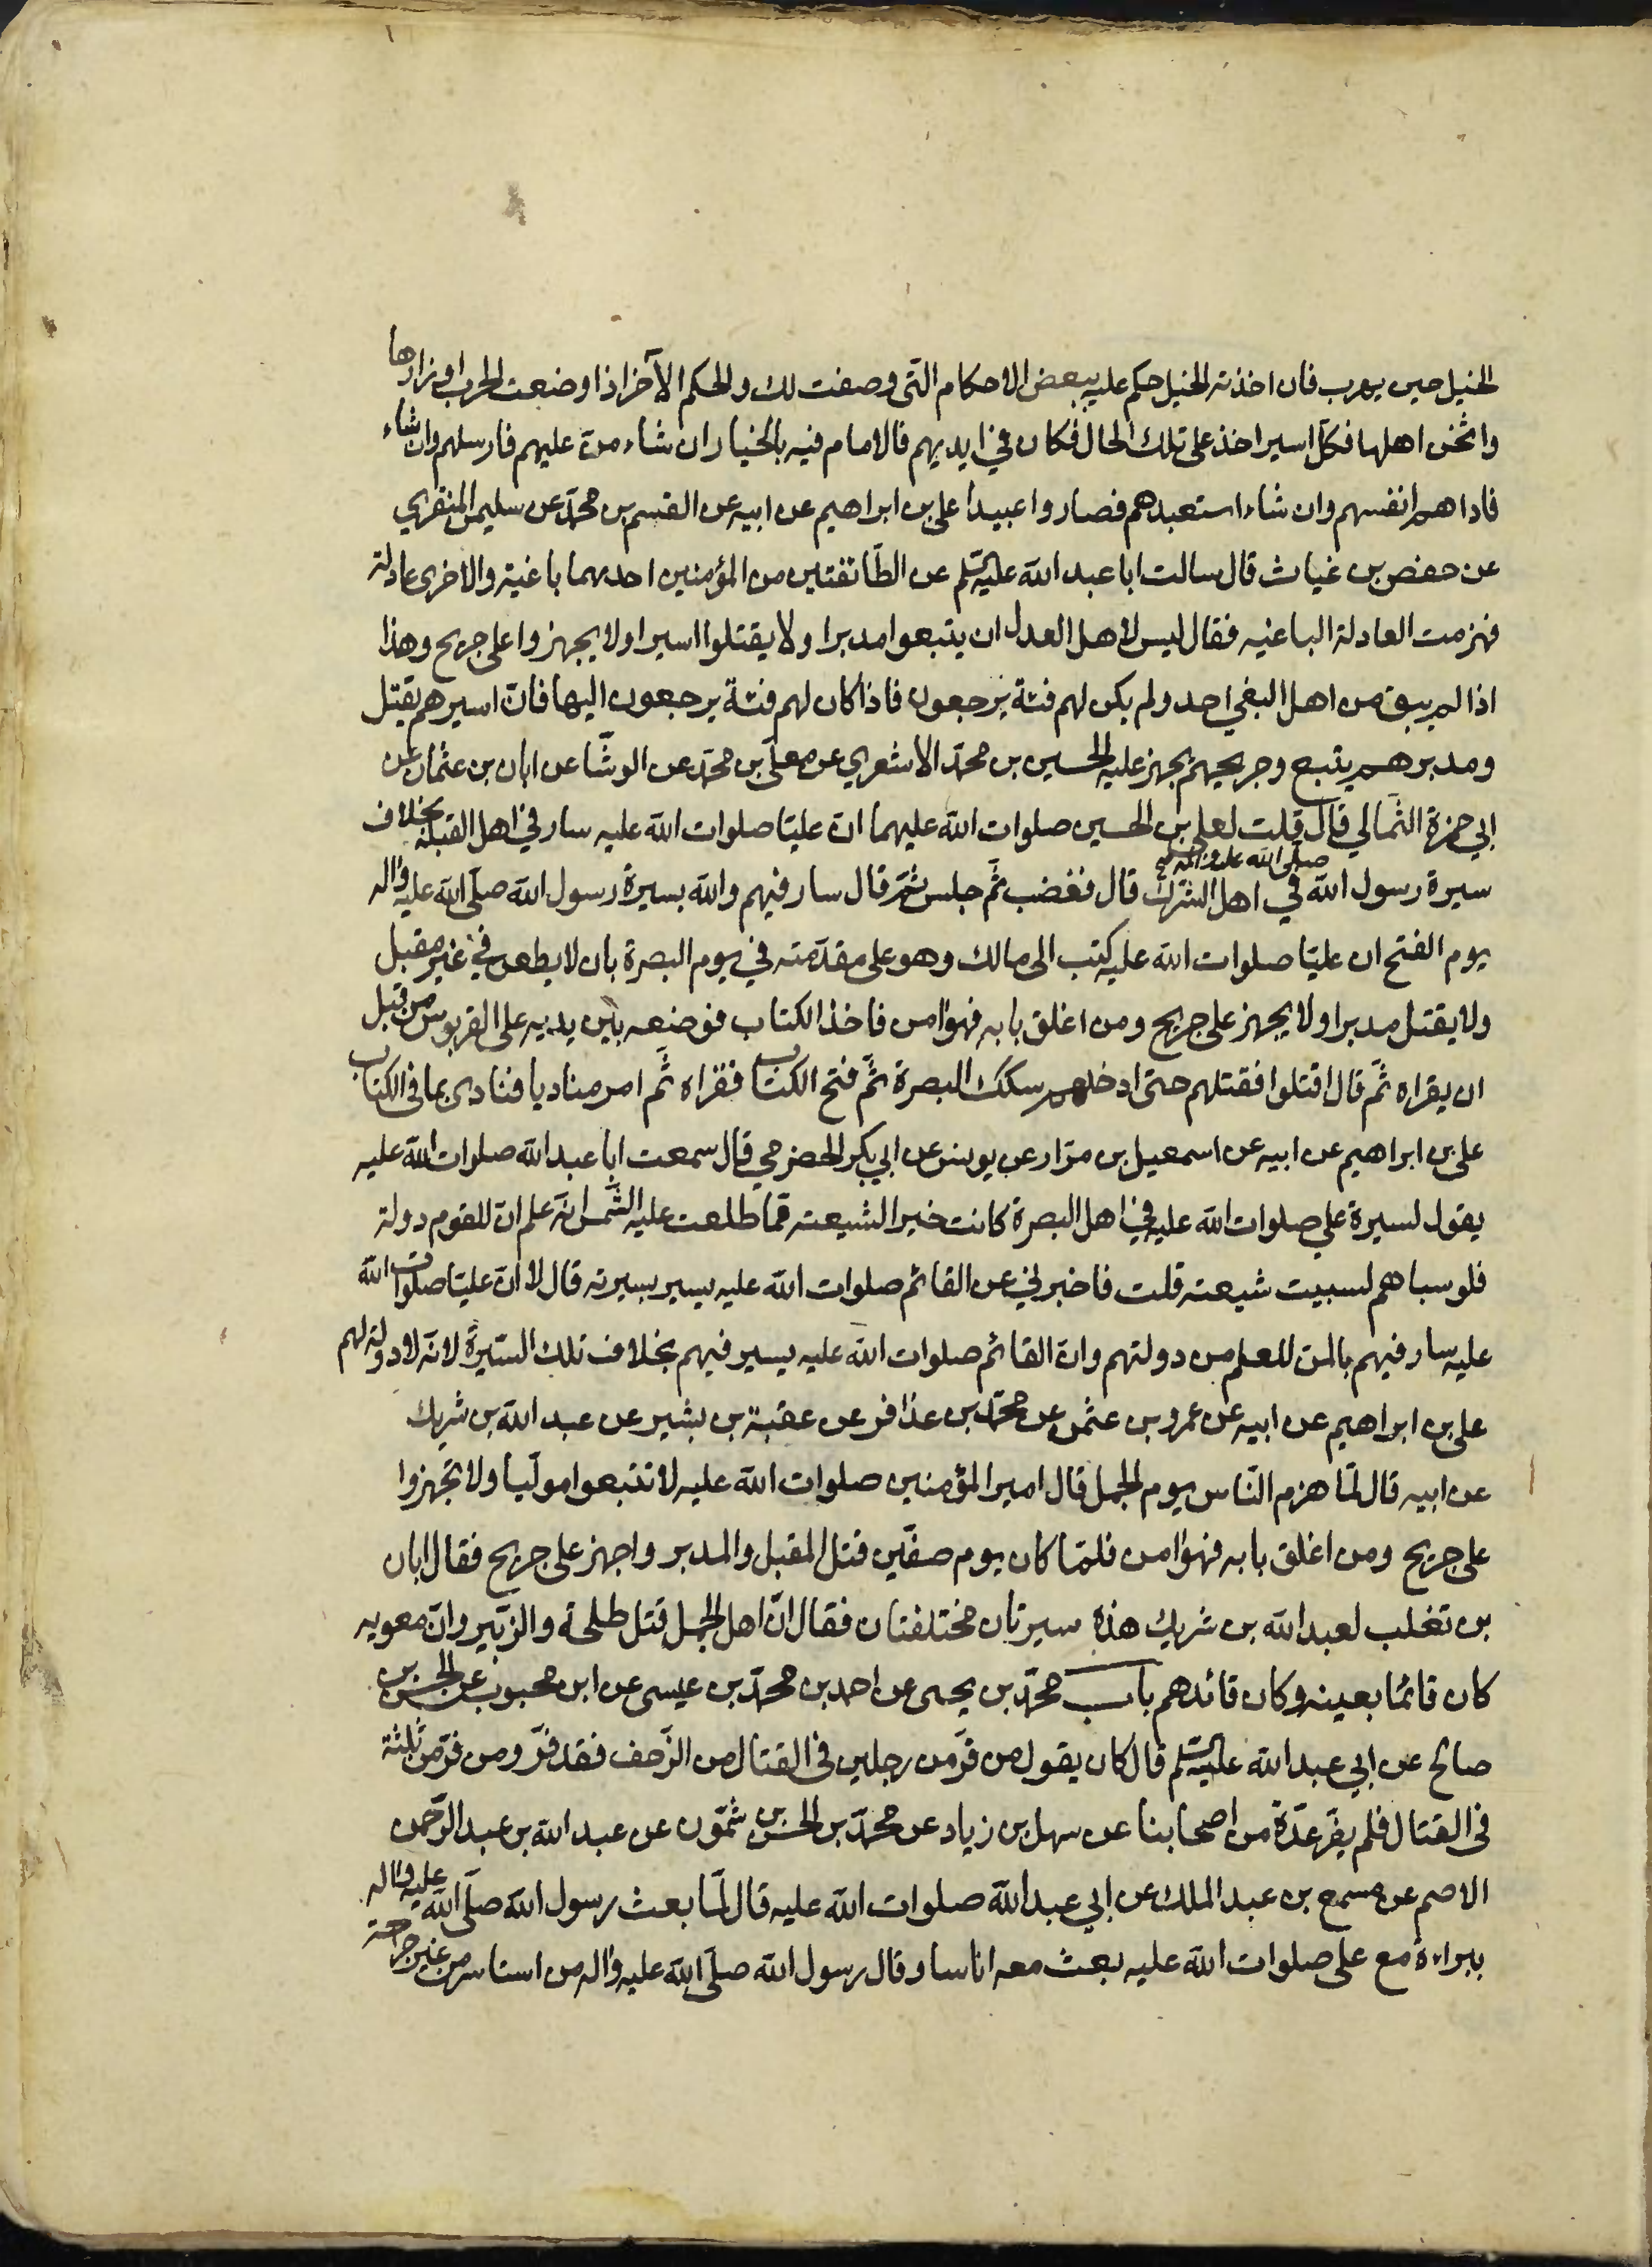 الخيل حين يهرب فان اخذته الخيل حكم عليه ببعض الاحكام التى وصفت لك والحكم الآخر اذا وضعت الحرب اوزارها
واثخن اهلها فكل اسير اخذ على تلك الحال فكان في ايديهم فالامام فيه بالخيار ان شاء منّ عليهم فارسلهم وان شاء
فاداهم انفسهم وان شاء استعبدهم فصاروا عبيدا على بن ابراهيم عن ابيه عن القسم بن محمّد عن سليمن المنقري
عن حفص بن غياث قال سالت ابا عبد الله عليه السّلم عن الطّائفتين من المؤمنين احديهما باغية والاخرى عادلة
فهزمت العادلة الباغيه فقال ليس لاهل العدل ان يتبعوا مدبرا ولا يقتلوا اسيرا ولا يجهزوا على جريح وهذا
اذا لم يبق من اهل البغي احد ولم يكن لهم فئة يرجعون فاذا كان لهم فئة يرجعون اليها فانّ اسيرهم يقتل
ومدبرهم يتبع وجريحهم يجهز عليه الحسين بن محمّد الاشعري عن معلّى بن محمّد عن الوشّا عن ابان بن عثمان عن
ابي حمزة الثّمالي قال قلت لعلى بن الحسين صلوات الله عليهما انّ عليّا صلوات الله عليه سار في اهل القبلة بخلاف
سيرة رسول الله صلّى الله عليه واله في اهل الشّرك قال فغضب ثمّ جلس ثمّ قال سار فيهم والله بسيرة رسول الله صلّى الله عليه واله
يوم الفتح ان عليّا صلوات الله عليه كتب الى مالك وهو على مقدّمته في يوم البصرة بان لا يطعن في غير مقبل
ولا يقتل مدبرا ولا يجهز على جريح ومن اغلق بابه فهو امن فاخذ الكتاب فوضعه بين يديه على القربوس من قبل
ان يقراه ثمّ قال اقتلوا فقتلهم حتى ادخلهم سكك البصرة ثمّ فتح الكتاب فقراه ثمّ امر مناديا فنادى بما فى الكتاب
على بن ابراهيم عن ابيه عن اسمعيل بن مرّار عن يونس عن ابي بكر الحضرمي قال سمعت ابا عبد الله صلوات الله عليه
يقول لسيرة علي صلوات الله عليه في اهل البصرة كانت خير الشيعته ممّا طلعت عليه الشّمس انّه علم ان للقوم دولة
فلو سباهم لسبيت شيعته قلت فاخبرني عن القائم صلوات الله عليه يسير بسيرته قال لا انّ عليّا صلوات الله
عليه سار فيهم بالمن للعلم من دولتهم وانّ القائم صلوات الله عليه يسير فيهم بخلاف تلك السّيرة لانّه لا دولة لهم
على بن ابراهيم عن ابيه عن عمرو بن عثمن عن محمّد بن عذافر عن عقبة بن بشير عن عبد الله بن شريك
عن ابيه قال لمّا هزم النّاس يوم الجمل قال امير المؤمنين صلوات الله عليه لا تتبعوا مولّيا ولا تجهزوا
على جريح ومن اغلق بابه فهو امن فلمّا كان يوم صفّين قتل المقبل والمدبر واجهز على جريح فقال ابان
بن تغلب لعبد الله بن شريك هذه سيرتان مختلفتان فقال انّ اهل الجمل قتل طلحة والزّبير وانّ معويه
كان قائما بعينه وكان قائدهم باب محمّد بن يحيى عن احمد بن محمّد بن عيسى عن ابن محبوب عن الحسن بن
صالح عن ابي عبد الله عليه السّلم قال كان يقول من فرّ من رجلين فى القتال من الزّحف فقد فرّ ومن فرّ من ثلثة
فى القتال فلم يفرّ عدّة من اصحابنا عن سهل بن زياد عن محمّد بن الحسن بن شمّون عن عبد الله بن عبد الرّحمن
الاصم عن مسمع بن عبد الملك عن ابي عبد الله صلوات الله عليه قال لمّا بعث رسول الله صلّى الله عليه واله
ببراءة مع على صلوات الله عليه بعث معه اناسا وقال رسول الله صلّى الله عليه واله من استاسر من غير جراحة